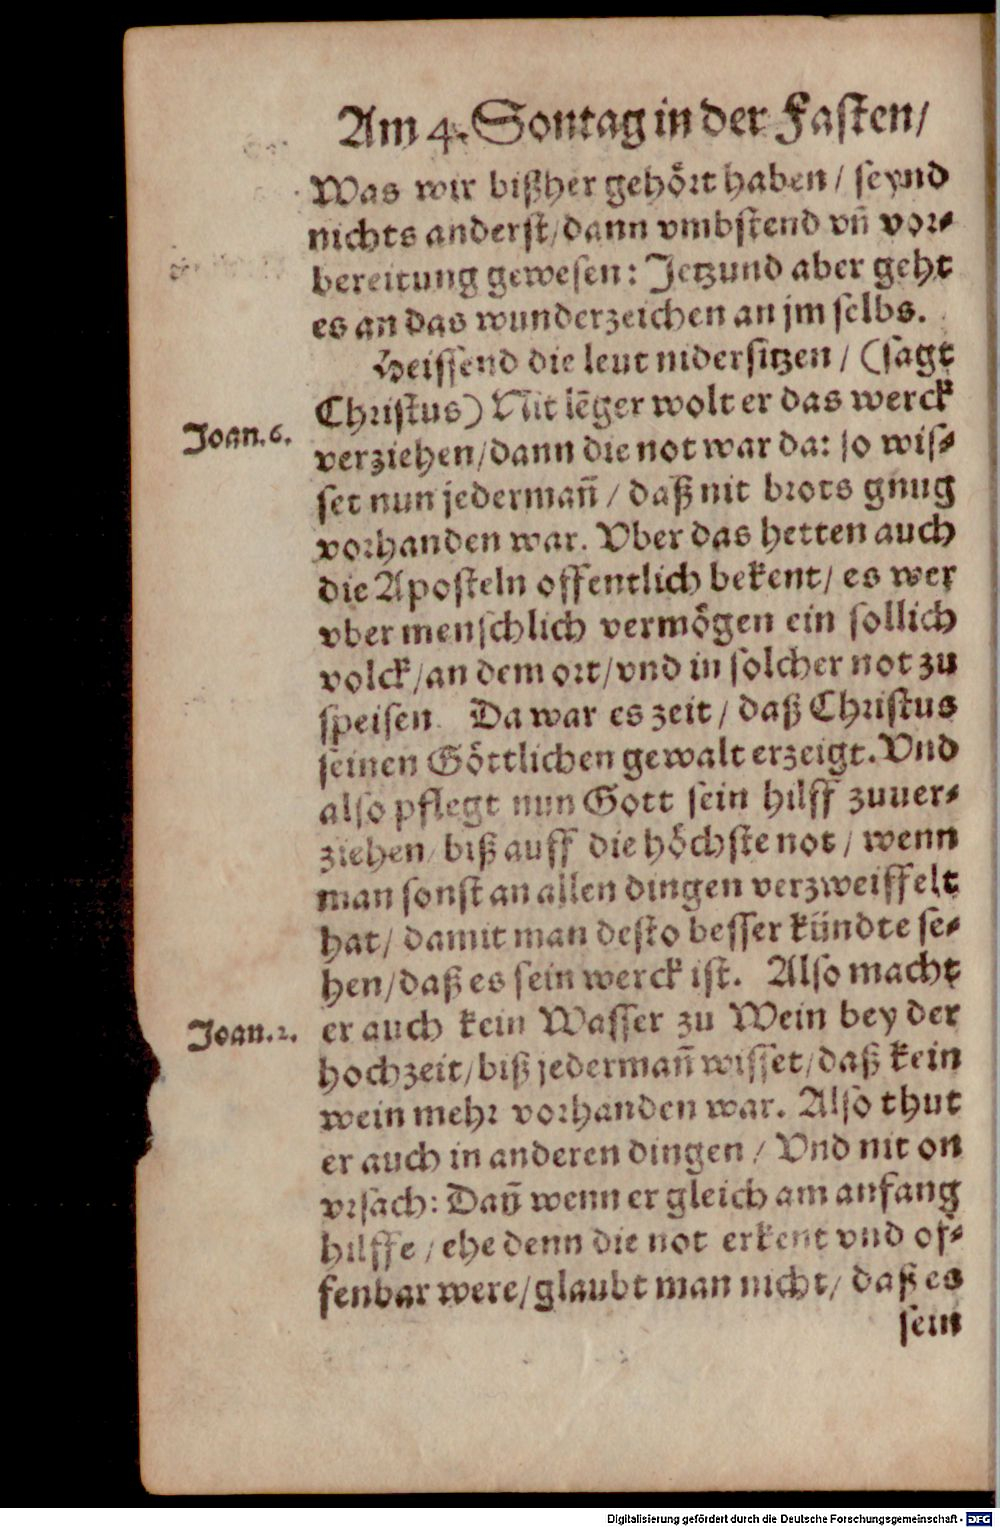 Am 4. Sontag in der Fasten/
Was wir bißher gehört haben / seynd
nichts anderst/dann vmbstend vñ vor-
bereitung gewesen: Jetzund aber geht
es an das wunderzeichen an jm selbs.
Heissend die leut nidersitzen / (sagt
Christus) Nit lẽger wolt er das werck
Joan.6.
verziehen/dann die not war da: so wis-
set nun jedermañ / daß nit brots gnug
vorhanden war. Vber das hetten auch
die Aposteln offentlich bekent/ es wer
vber menschlich vermögen ein sollich
volck/an dem ort/vnd in solcher not zu
speisen. Da war es zeit / daß Christus
seinen Göttlichen gewalt erzeigt. Vnd
also pflegt nun Gott sein hilff zuuer-
ziehen/ biß auff die höchste not / wenn
man sonst an allen dingen verzweiffelt
hat/ damit man desto besser kündte se-
hen/daß es sein werck ist. Also macht
Joan.2.
er auch kein Wasser zu Wein bey der
hochzeit/biß jedermañ wisset/daß kein
wein mehr vorhanden war. Also thut
er auch in anderen dingen / Vnd nit on
vrsach: Dañ wenn er gleich am anfang
hilffe / ehe denn die not erkent vnd of-
fenbar were/glaubt man nicht/ daß es
sein
Digitalisierung gefördert durch die Deutsche Forschungsgemeinschaft - DFG